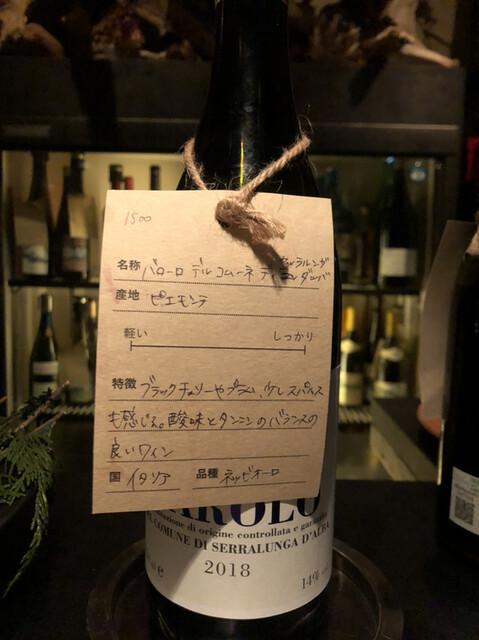 1500
名称 バローロ デル コムーネ ディ セッラルンガ ダルバ
産地 ピエモンテ
軽い しっかり
特徴 ブラックチェリーやプラム、少しスパイス
も感じる。酸味とタンニンのバランスの
良いワイン
国 イタリア 品種 ネッビオーロ
AROLO
azione di origine controllata e garantita
COMUNE DI SERRALUNGA D'ALBA
2018
14%